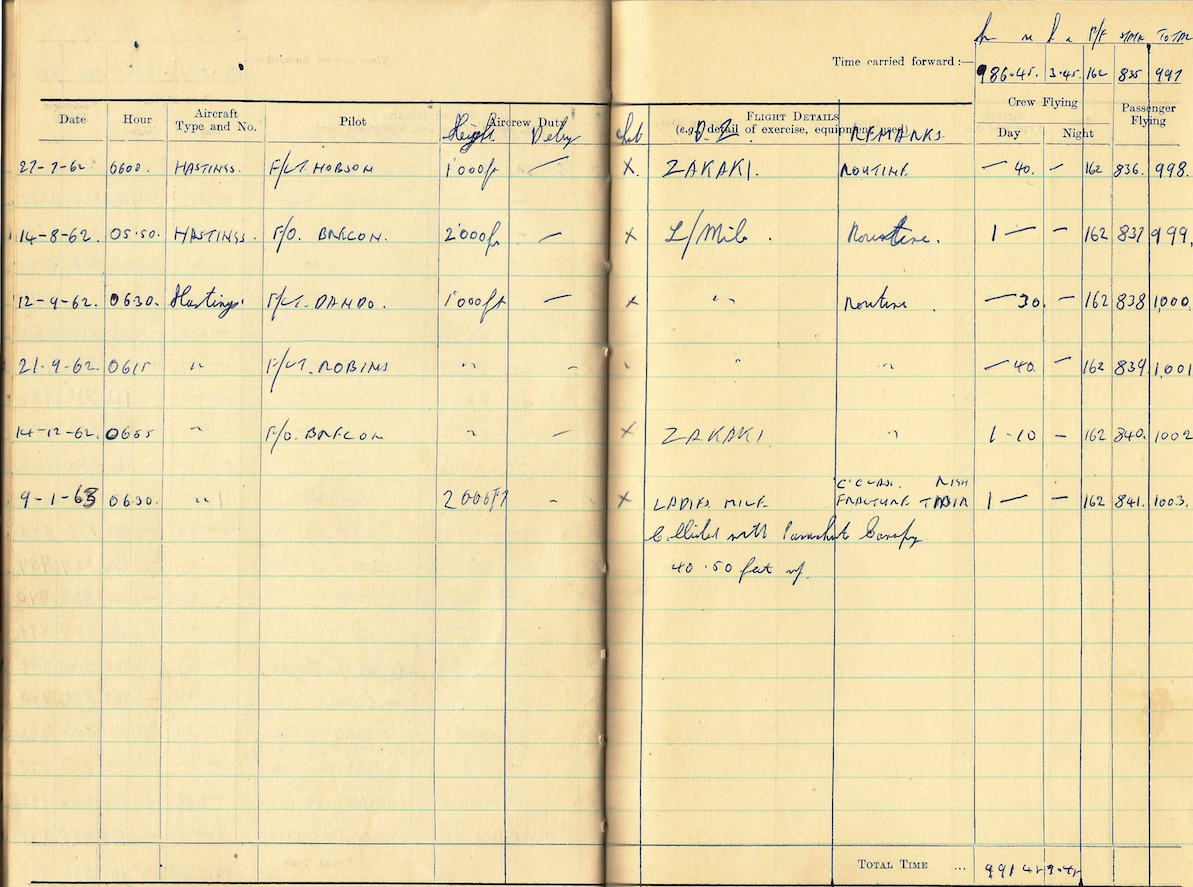 h m h m P/F TOTAL
Time carried forward :— 986·45. 3·45. 162 835 997
Date Hour Aircraft Type and No. Pilot Aircrew Duty Height Delay Flight Details (e.g., detail of exercise, equipment used) D.Z REMARKS. Crew Flying Day Night Passenger Flying
27-7-62 0600. HASTINGS. F/LT. HOBSON 1'000ft — X. ZAKAKI. ROUTINE — 40. — 162 836. 998.
14-8-62. 05·50. HASTINGS. F/O. BRECON. 2'000ft — X L/Mile. Routine. 1 — — 162 837 999.
12-9-62. 0630. Hastings. F/LT. DANDO. 1'000ft — X " Routine. — 30. — 162 838 1,000
21-9-62 0615 " F/LT. ROBINS " — " " " — 40. — 162 839. 1,001
14-12-62. 0655 " F/O. BRECON " — X ZAKAKI. " 1-10 — 162 840. 1002
9-1-63 0630. " 2000FT - X LADIES MILE. FRACTURE TIBIA 1 — — 162 841. 1003.
Collided with Parachute Canopy
40·50 feet up.
Total Time ...